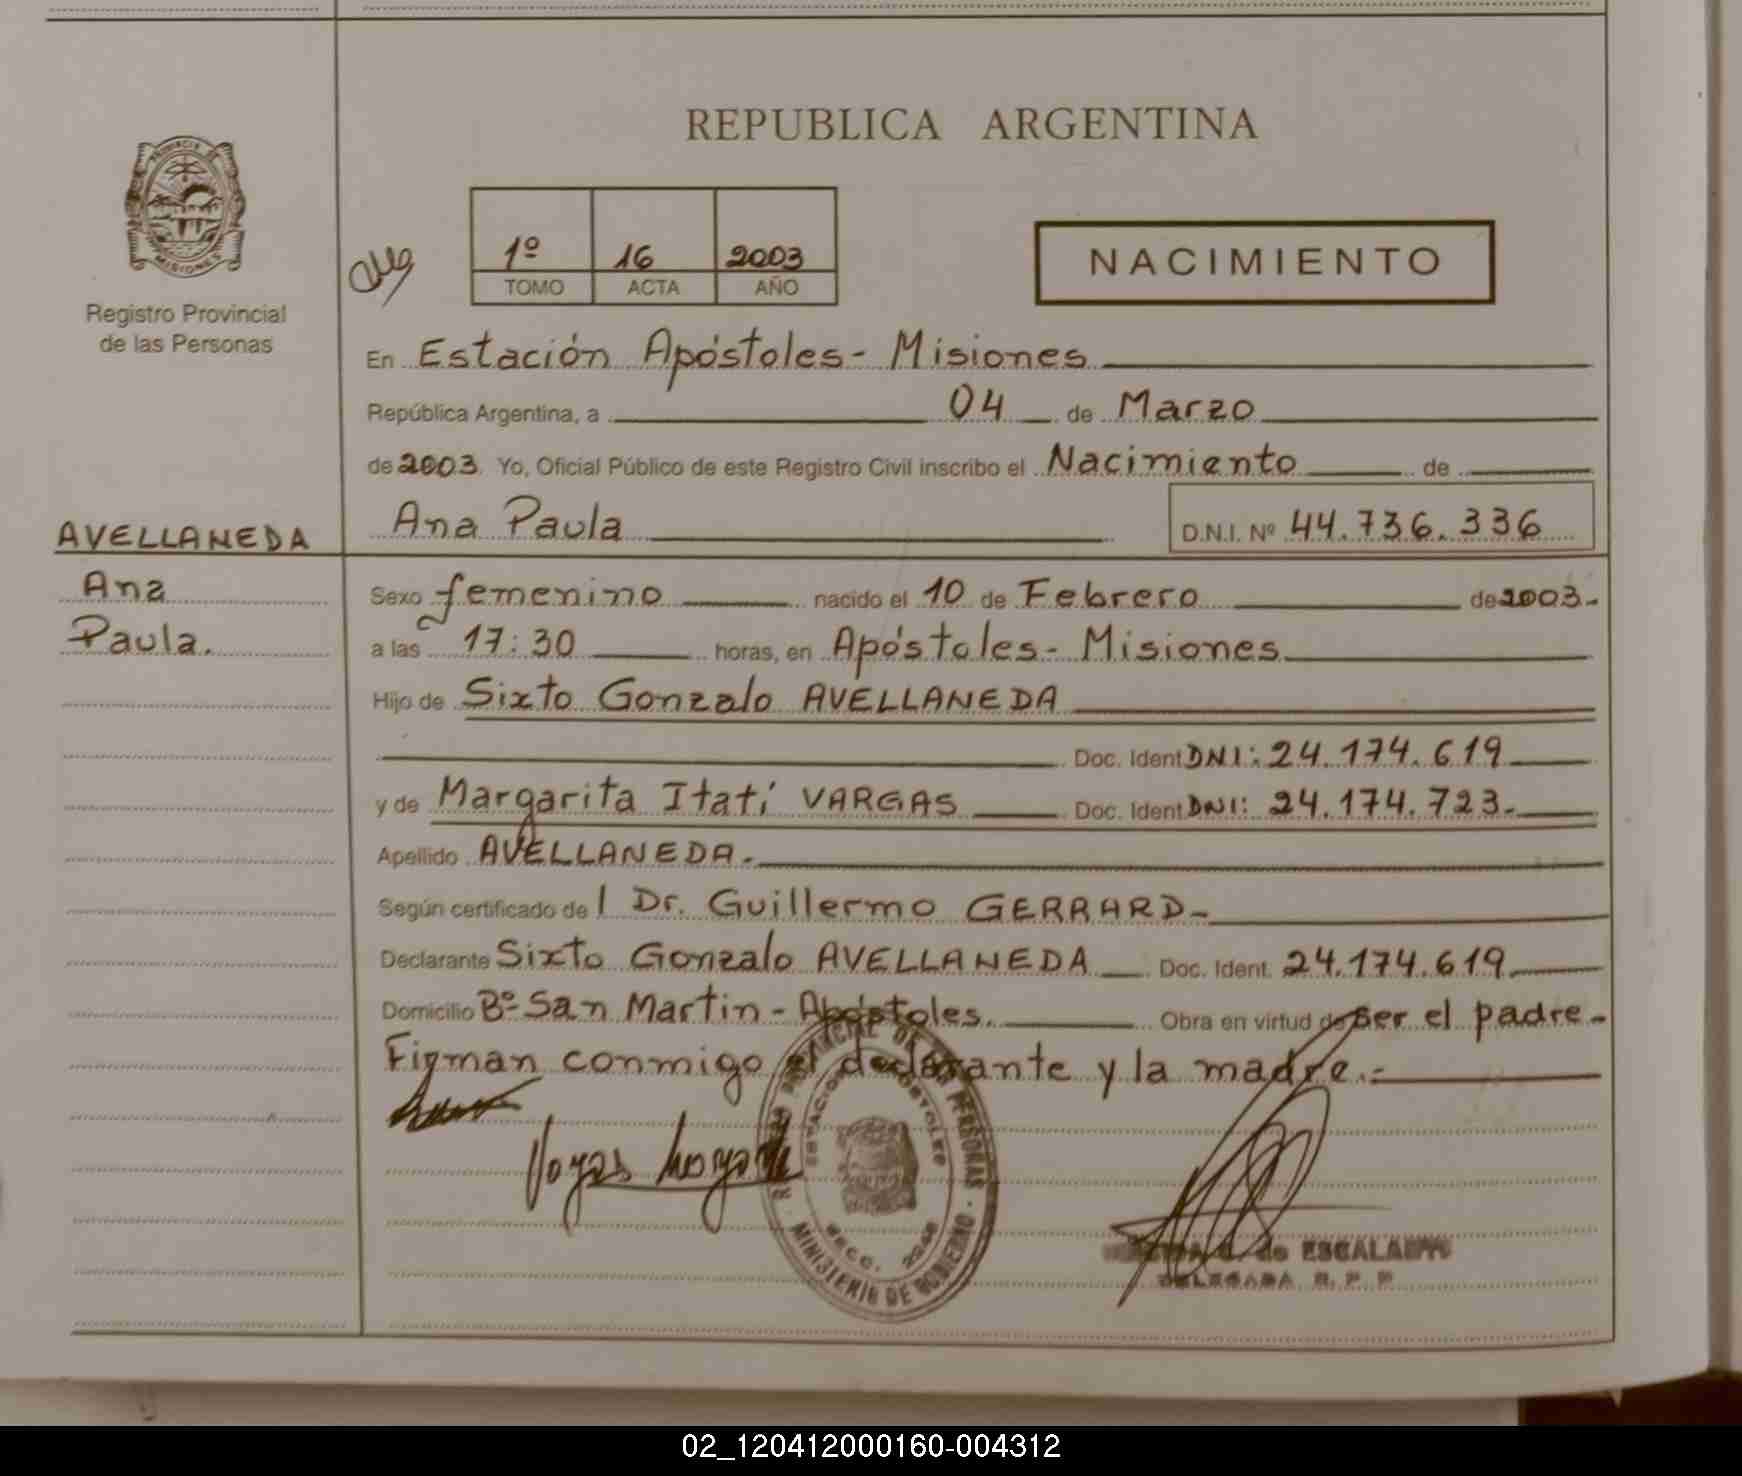 REPUBLICA ARGENTINA
PROVINCIA DE MISIONES
Registro Provincial
de las Personas
1º 16 2003
TOMO ACTA AÑO
NACIMIENTO
En Estación Apóstoles - Misiones
República Argentina, a 04 de Marzo
de 2003. Yo, Oficial Público de este Registro Civil inscribo el Nacimiento de
Ana Paula D.N.I. Nº 44.736.336
AVELLANEDA
Ana
Paula.
Sexo femenino nacido el 10 de Febrero de 2003.-
a las 17:30 horas, en Apóstoles - Misiones
Hijo de Sixto Gonzalo AVELLANEDA
Doc. Ident DNI: 24.174.619
y de Margarita Itatí VARGAS Doc. Ident DNI: 24.174.723.-
Apellido AVELLANEDA.-
Según certificado de l Dr. Guillermo GERRARD-
Declarante Sixto Gonzalo AVELLANEDA Doc. Ident. 24.174.619
Domicilio Bº San Martin - Apóstoles. Obra en virtud de ser el padre.-
Firman conmigo el declarante y la madre.-
PROVINCIAL DE LAS PERSONAS
ESTACION APOSTOLES
SECC. 2248
MINISTERIO DE GOBIERNO
de ESCALANTE
DELEGADA R. P. P.
02_120412000160-004312